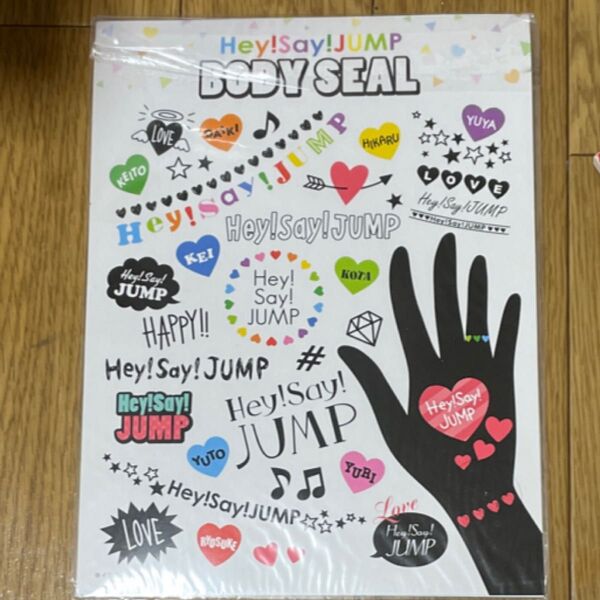 Hey!Say!JUMP
BODY SEAL
LOVE
DAIKI
HIKARU
YUYA
KEITO
Hey!Say!JUMP
LOVE
Hey!Say!JUMP
Hey!Say!JUMP
Hey!Say!JUMP
KEI
Hey!Say!
JUMP
Hey!
Say!
JUMP
KOTA
HAPPY!!
#
Hey!Say!JUMP
Hey!Say!
JUMP
Hey!Say!
JUMP
Hey!Say!
JUMP
YUTO
YURI
Hey!Say!JUMP
LOVE
RYOSUKE
Love
Hey!Say!
JUMP